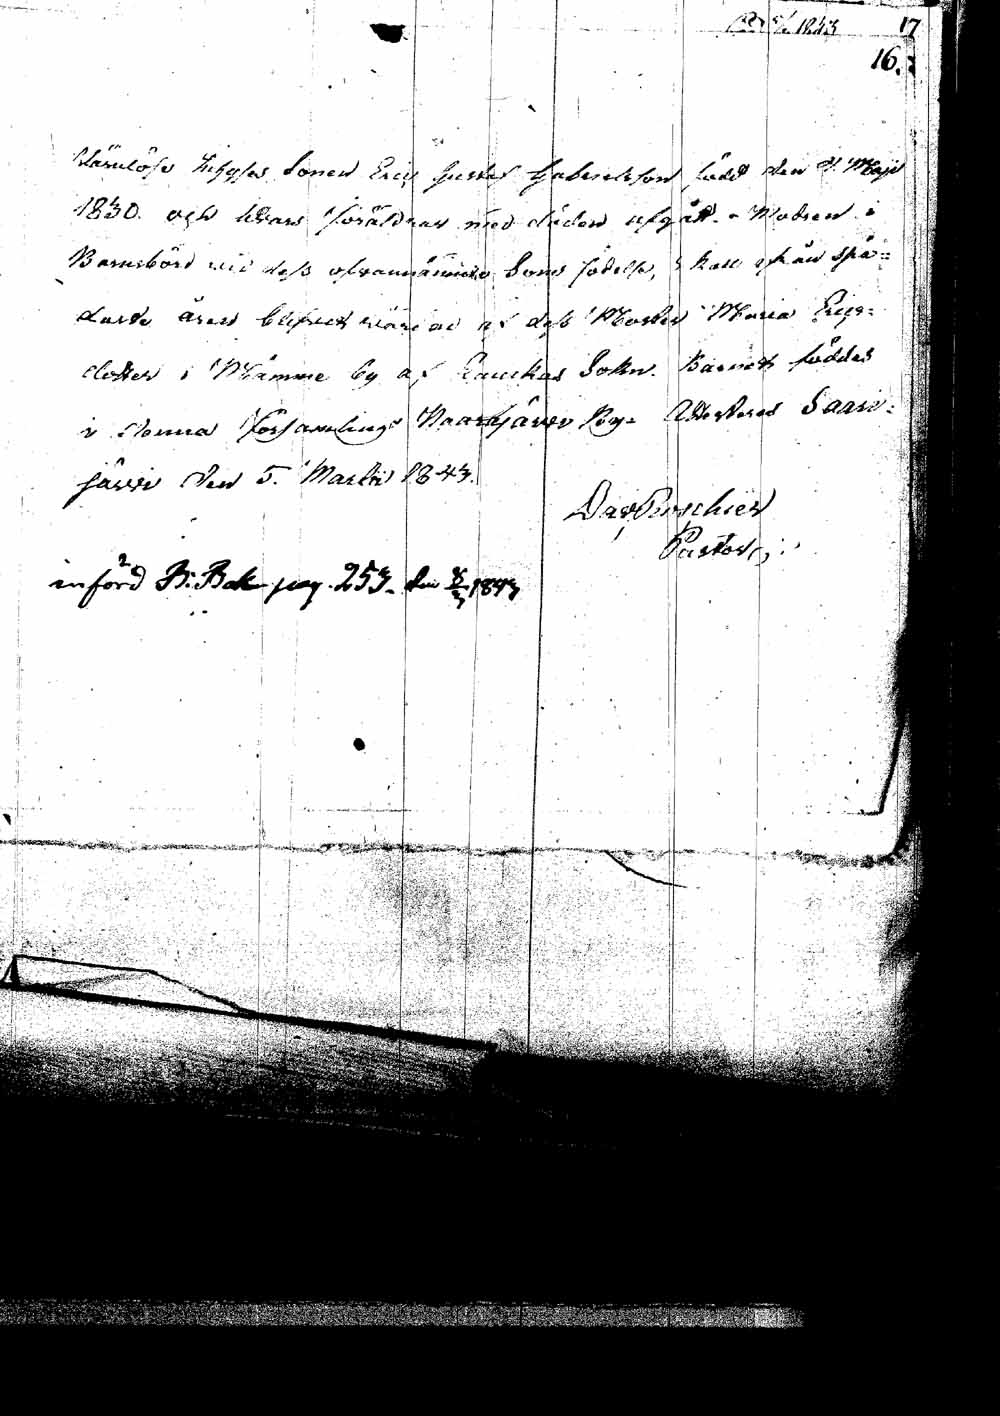 1843 17
16.
Sonen Eric Gustaf Gabrielsson, född den Maji
1830. och hvars föräldrar med döden afgått. Modren i
Barnsbörd vid dess ofvannämnde Sons födelse, skall ifrån spä=
daste åren blifvit vårdad af dess Moster Maria Erics=
dotter i Mämme by af Laukas Sokn. Barnet föddes
i denna Församlings by. Attesteras Saari=
järvi den 5. Martii 1843.
Dav. Roschier
Pastor
införd B. Bok pag. 253. den 8/3 1843